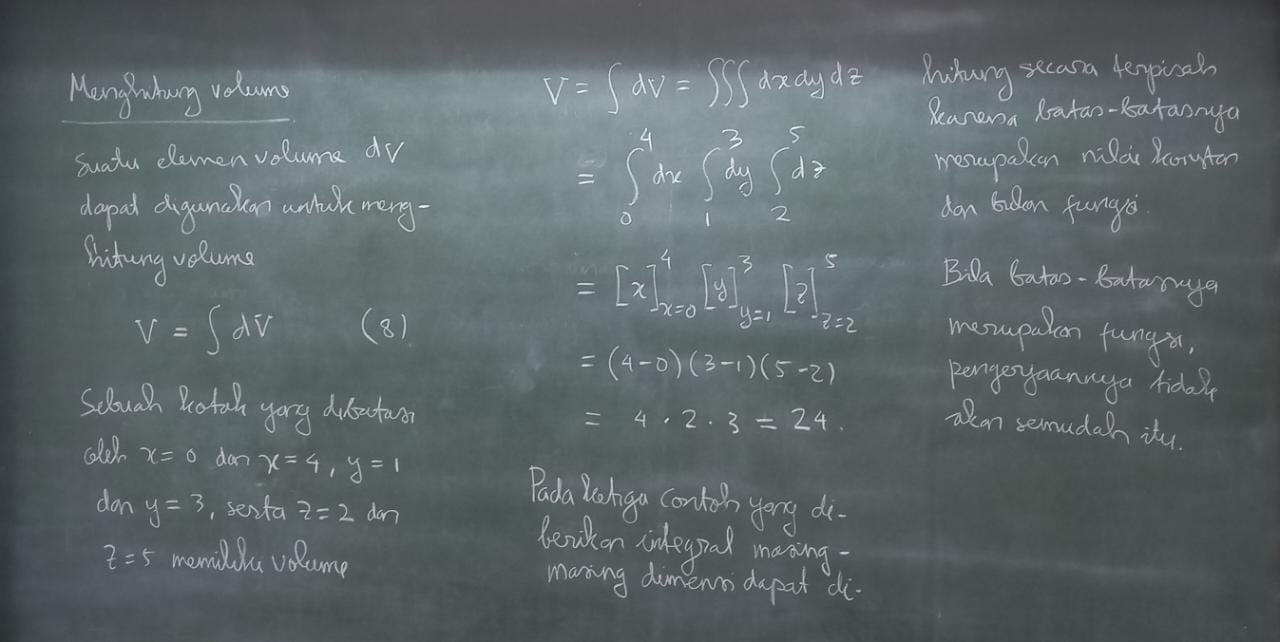 Menghitung volume
Suatu elemen volume dV
dapat digunakan untuk meng-
hitung volume
V = ∫ dV (8)
Sebuah kotak yang dibatasi
oleh x = 0 dan x = 4, y = 1
dan y = 3, serta z = 2 dan
z = 5 memiliki volume
V = ∫ dV = ∫∫∫ dx dy dz
= ∫₀⁴ dx ∫₁³ dy ∫₂⁵ dz
= [x]⁴ₓ₌₀ [y]³ y=1 [z]⁵ z=2
= (4-0)(3-1)(5-2)
= 4 · 2 · 3 = 24.
Pada ketiga contoh yang di-
berikan integral masing-
masing dimensi dapat di-
hitung secara terpisah
karena batas-batasnya
merupakan nilai konstan
dan bukan fungsi.
Bila batas-batasnya
merupakan fungsi,
pengerjaannya tidak
akan semudah itu.